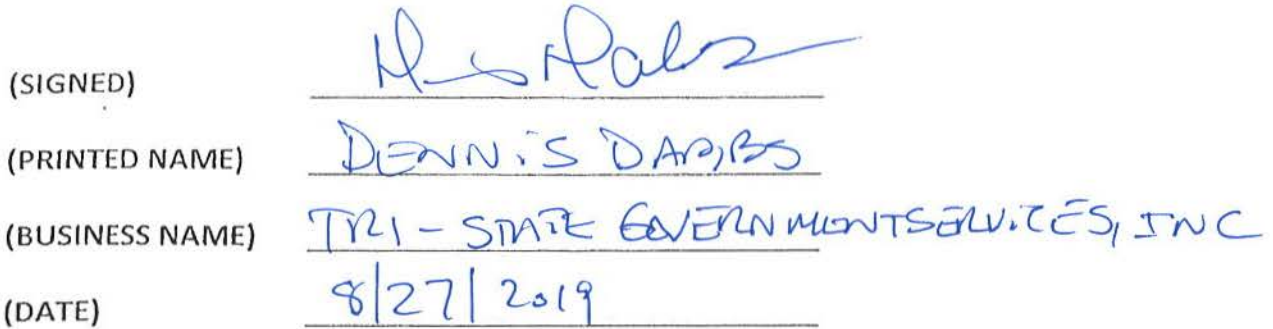 (SIGNED)
(PRINTED NAME) DENNIS DABBS
(BUSINESS NAME) TRI-STATE GOVERNMENT SERVICES, INC
(DATE) 8/27/2019